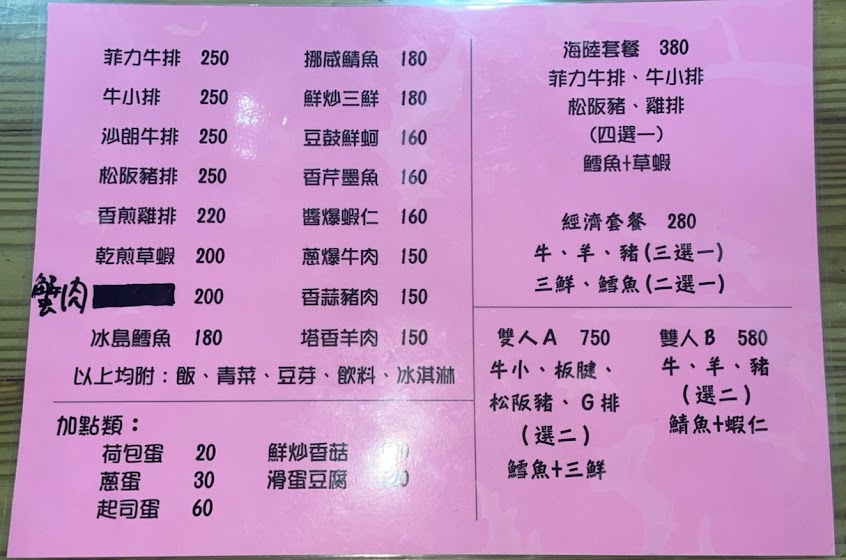 菲力牛排 250
牛小排 250
沙朗牛排 250
松阪豬排 250
香煎雞排 220
乾煎草蝦 200
蟹肉 200
冰島鱈魚 180
挪威鯖魚 180
鮮炒三鮮 180
豆鼓鮮蚵 160
香芹墨魚 160
醬爆蝦仁 160
蔥爆牛肉 150
香蒜豬肉 150
塔香羊肉 150
以上均附：飯、青菜、豆芽、飲料、冰淇淋
加點類：
荷包蛋 20
蔥蛋 30
起司蛋 60
鮮炒香菇
滑蛋豆腐
海陸套餐 380
菲力牛排、牛小排
松阪豬、雞排
(四選一)
鱈魚+草蝦
經濟套餐 280
牛、羊、豬(三選一)
三鮮、鱈魚(二選一)
雙人A 750
牛小、板腱、
松阪豬、G排
(選二)
鱈魚+三鮮
雙人B 580
牛、羊、豬
(選二)
鯖魚+蝦仁